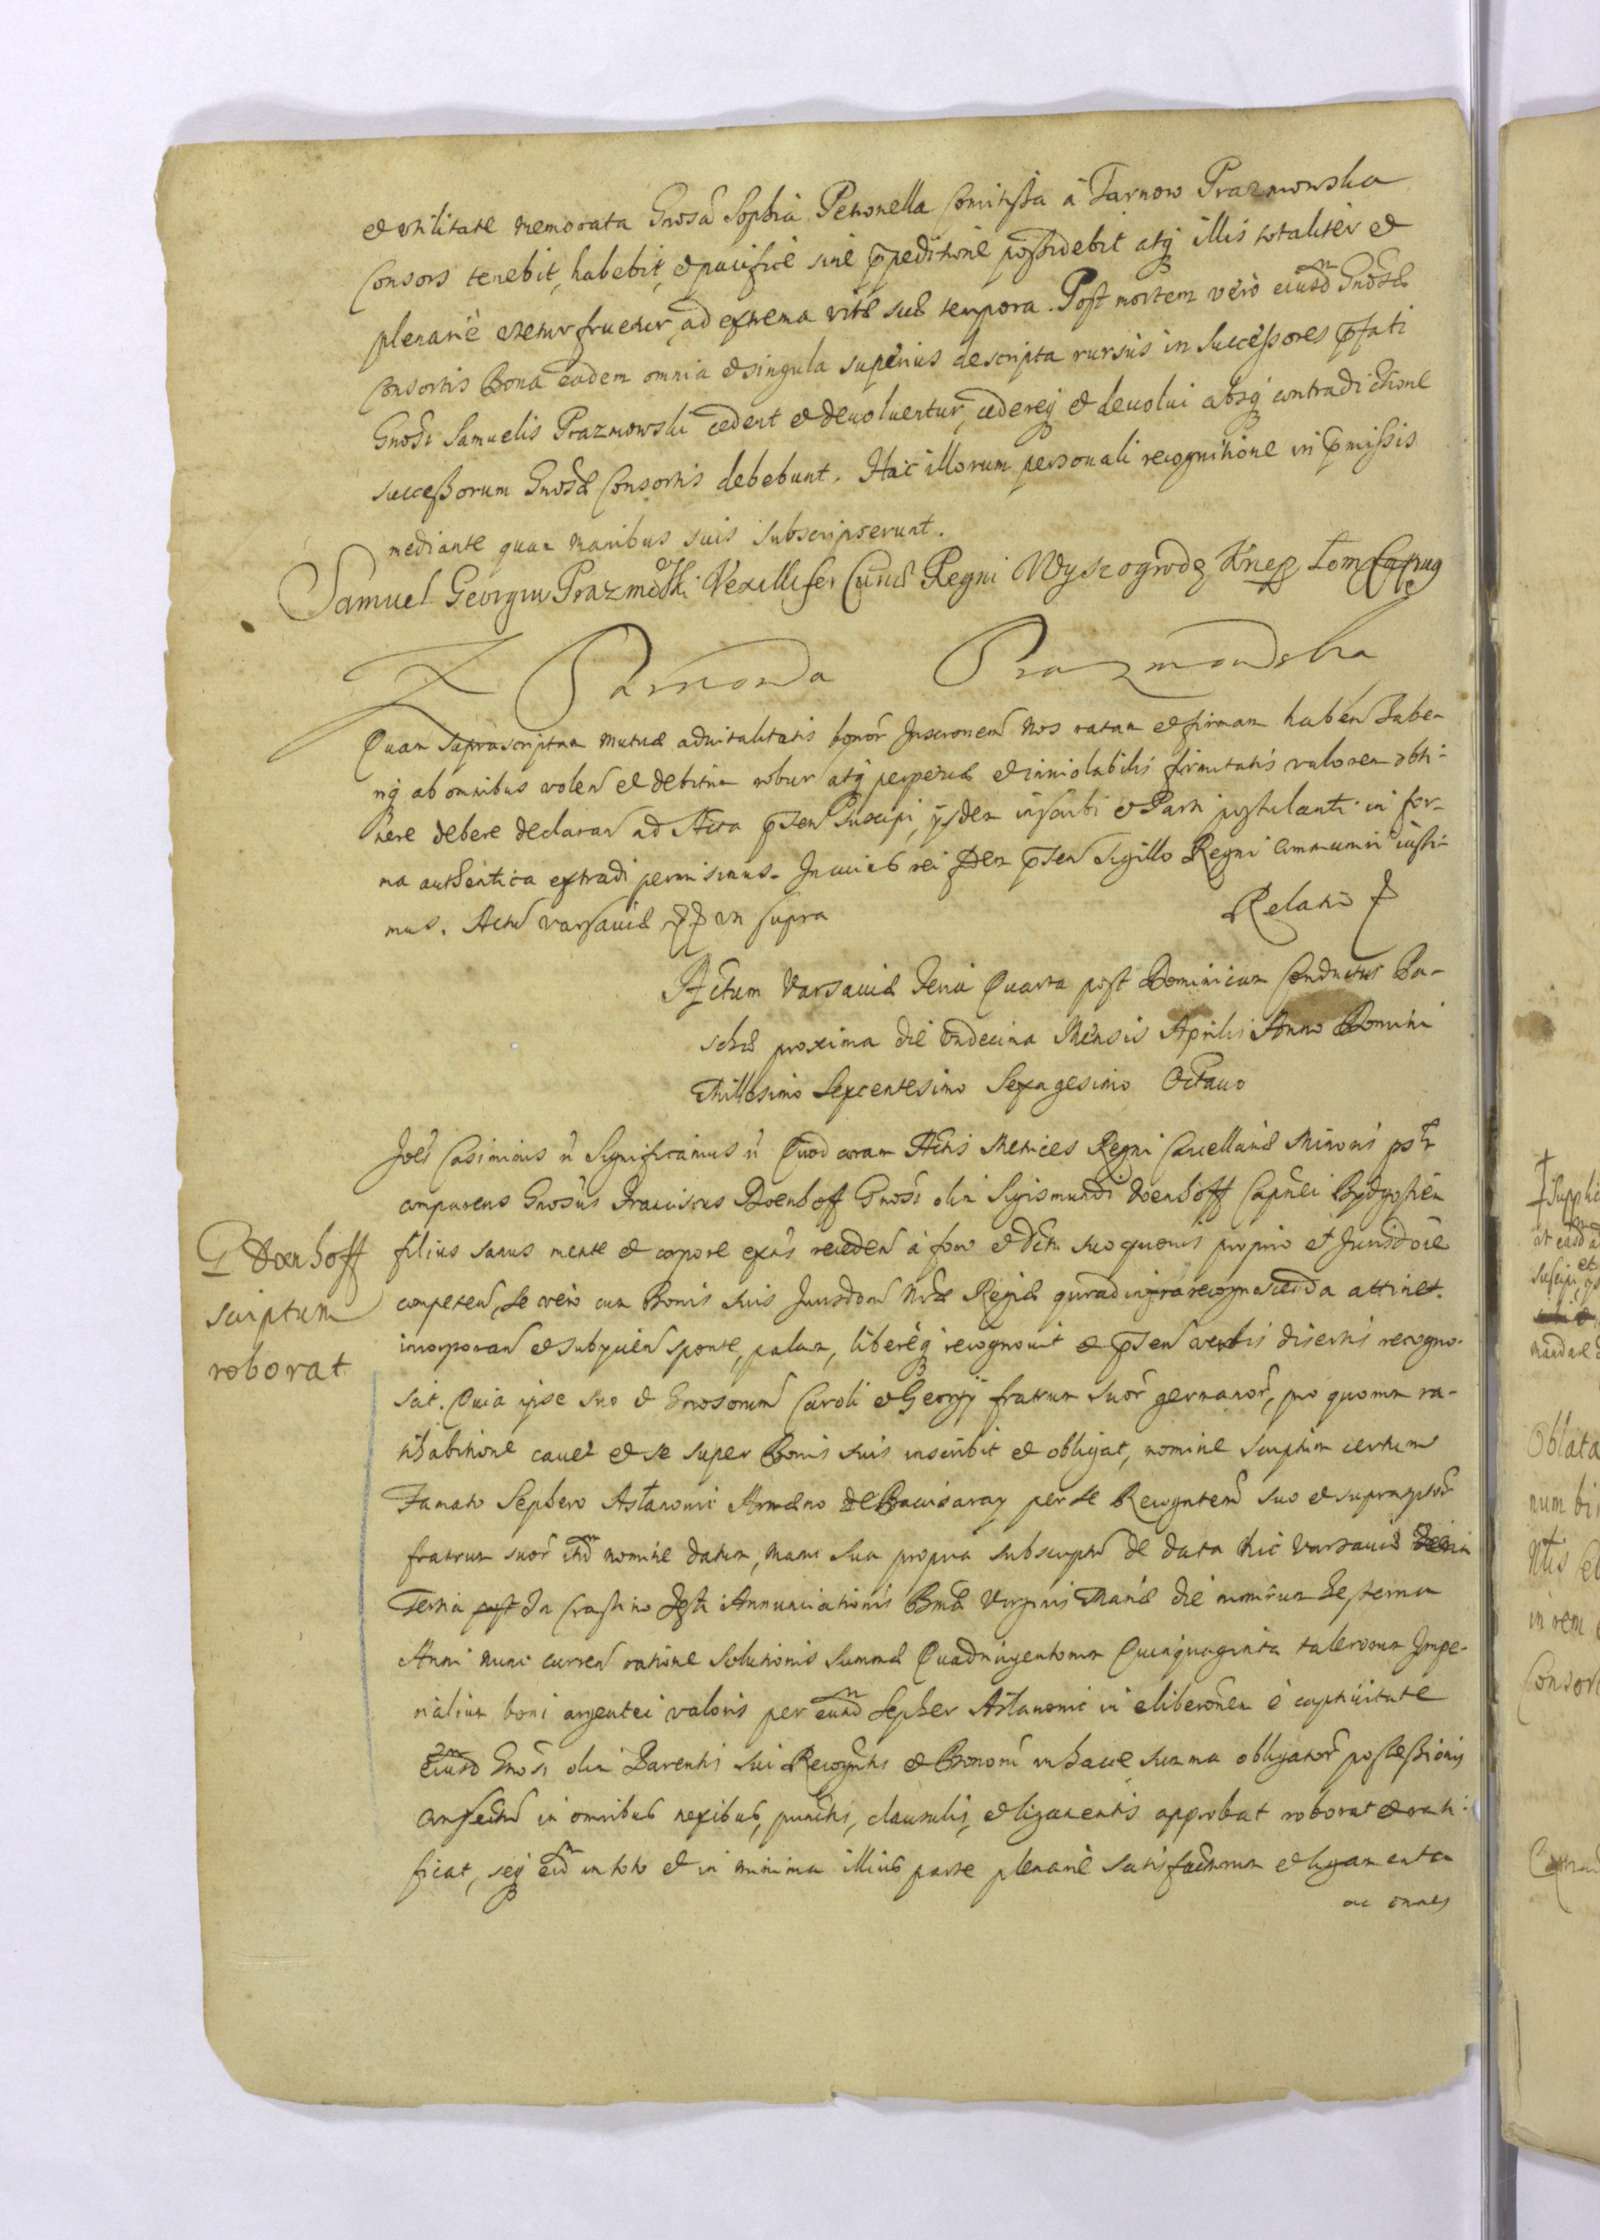 et utilitate memorata Gnosa Sophia Petronella Comitissa à Tarnow Prazmowska
Consors tenebit, habebit, et pacifice sine p̄peditione possidebit atq; illis totaliter et
plenarie utetur fruetur, ad extrema vitæ suæ tempora. Post mortem vero eiusd Gnosæ
Consortis Bona eadem omnia et singula superius descripta rursus in Successores p̄fati
Gnosi Samuelis Prazmowski cedent et devoluentur, cedereq; et deuolui absq; contradictione
successorum Gnosæ Consortis debebunt. Hac illorum personali recognitione in p̄missis
mediante quam manibus suis subscripserunt.
Samuel Georgius Prazmowski Vexillifer Curiæ Regni Wyszogrodz
Z Tarnowa Prazmowska
Quam suprascriptam mutuæ aduitalitatis bonor Inscronem Nos ratam et firmam haben habe-
riq; ab omnibus volen et debitum robur atq; perpetuæ et inuiolabilis firmitatis valorem obti-
nere debere declaran ad Acta p̄sen suscipi, ijsdem inscribi et Parti postulanti in for-
ma authentica extradi permisimus. In cuius rei fidem p̄sen Sigillo Regni communiri iussi-
mus. Actu Varsauiæ ut supra
Relatio
Actum Varsauiæ Feria Quarta post Dominicam Conductus Pa-
schæ proxima die undecima Mensis Aprilis Anno Domini
Millesimo Sexcentesimo Sexagesimo Octauo
Joes Casimirus n Significamus n Quod coram Actis Metrices Regni Cancellariæ Minoris pstr
comparens Gnosus Franciscus Doenhoff Gnosi olim Sigismundi Doenhoff Capnei Bydgostien
filius sanus mente et corpore exns receden à foro et Dctu suo quouis proprio et Jurisdoe
competen, se vero cum Bonis suis Jurisdoni Nræ Regiæ quoad infra recognoscenda attinet.
incorporan et subijcien sponte, palam, libereq; recognouit et p̄sen verbis disertis recogno-
scit. Quia ipse suo et Gnosorum Caroli et Georgij fratrum suor germanor, pro quorum ra-
tihabitione cauet et se super Bonis suis inscribit et obligat, nomine scriptum certum
Famato Sephero Astanowic Armeno de Bacisaray per se Recogntem suo et suprascptor
fratrum suor itd nomine datum, manu sua propria subscriptu de data hic Varsauiæ
Feria post In Crastino Festi Annunciationis Bmæ Virginis Mariæ die nimirum hesterna
Anni nunc curren ratione solutionis summæ Quadringentorum Quinquaginta talerorum Impe-
rialium boni argentei valoris per eund Sepher Astanowic in eliberonem è captiuitate
eiusd Gnosi olim Parentis sui Recogntis et Bonorum in hacce summa obligator possessionis
Confectu in omnibus nexibus, punctis, clausulis, et ligamentis approbat roborat et rati-
ficat, seq; eid in toto et in minima illius parte plenarie satisfacturum et ligamenta
ac omnes
G Doenhoff
scriptum
roborat